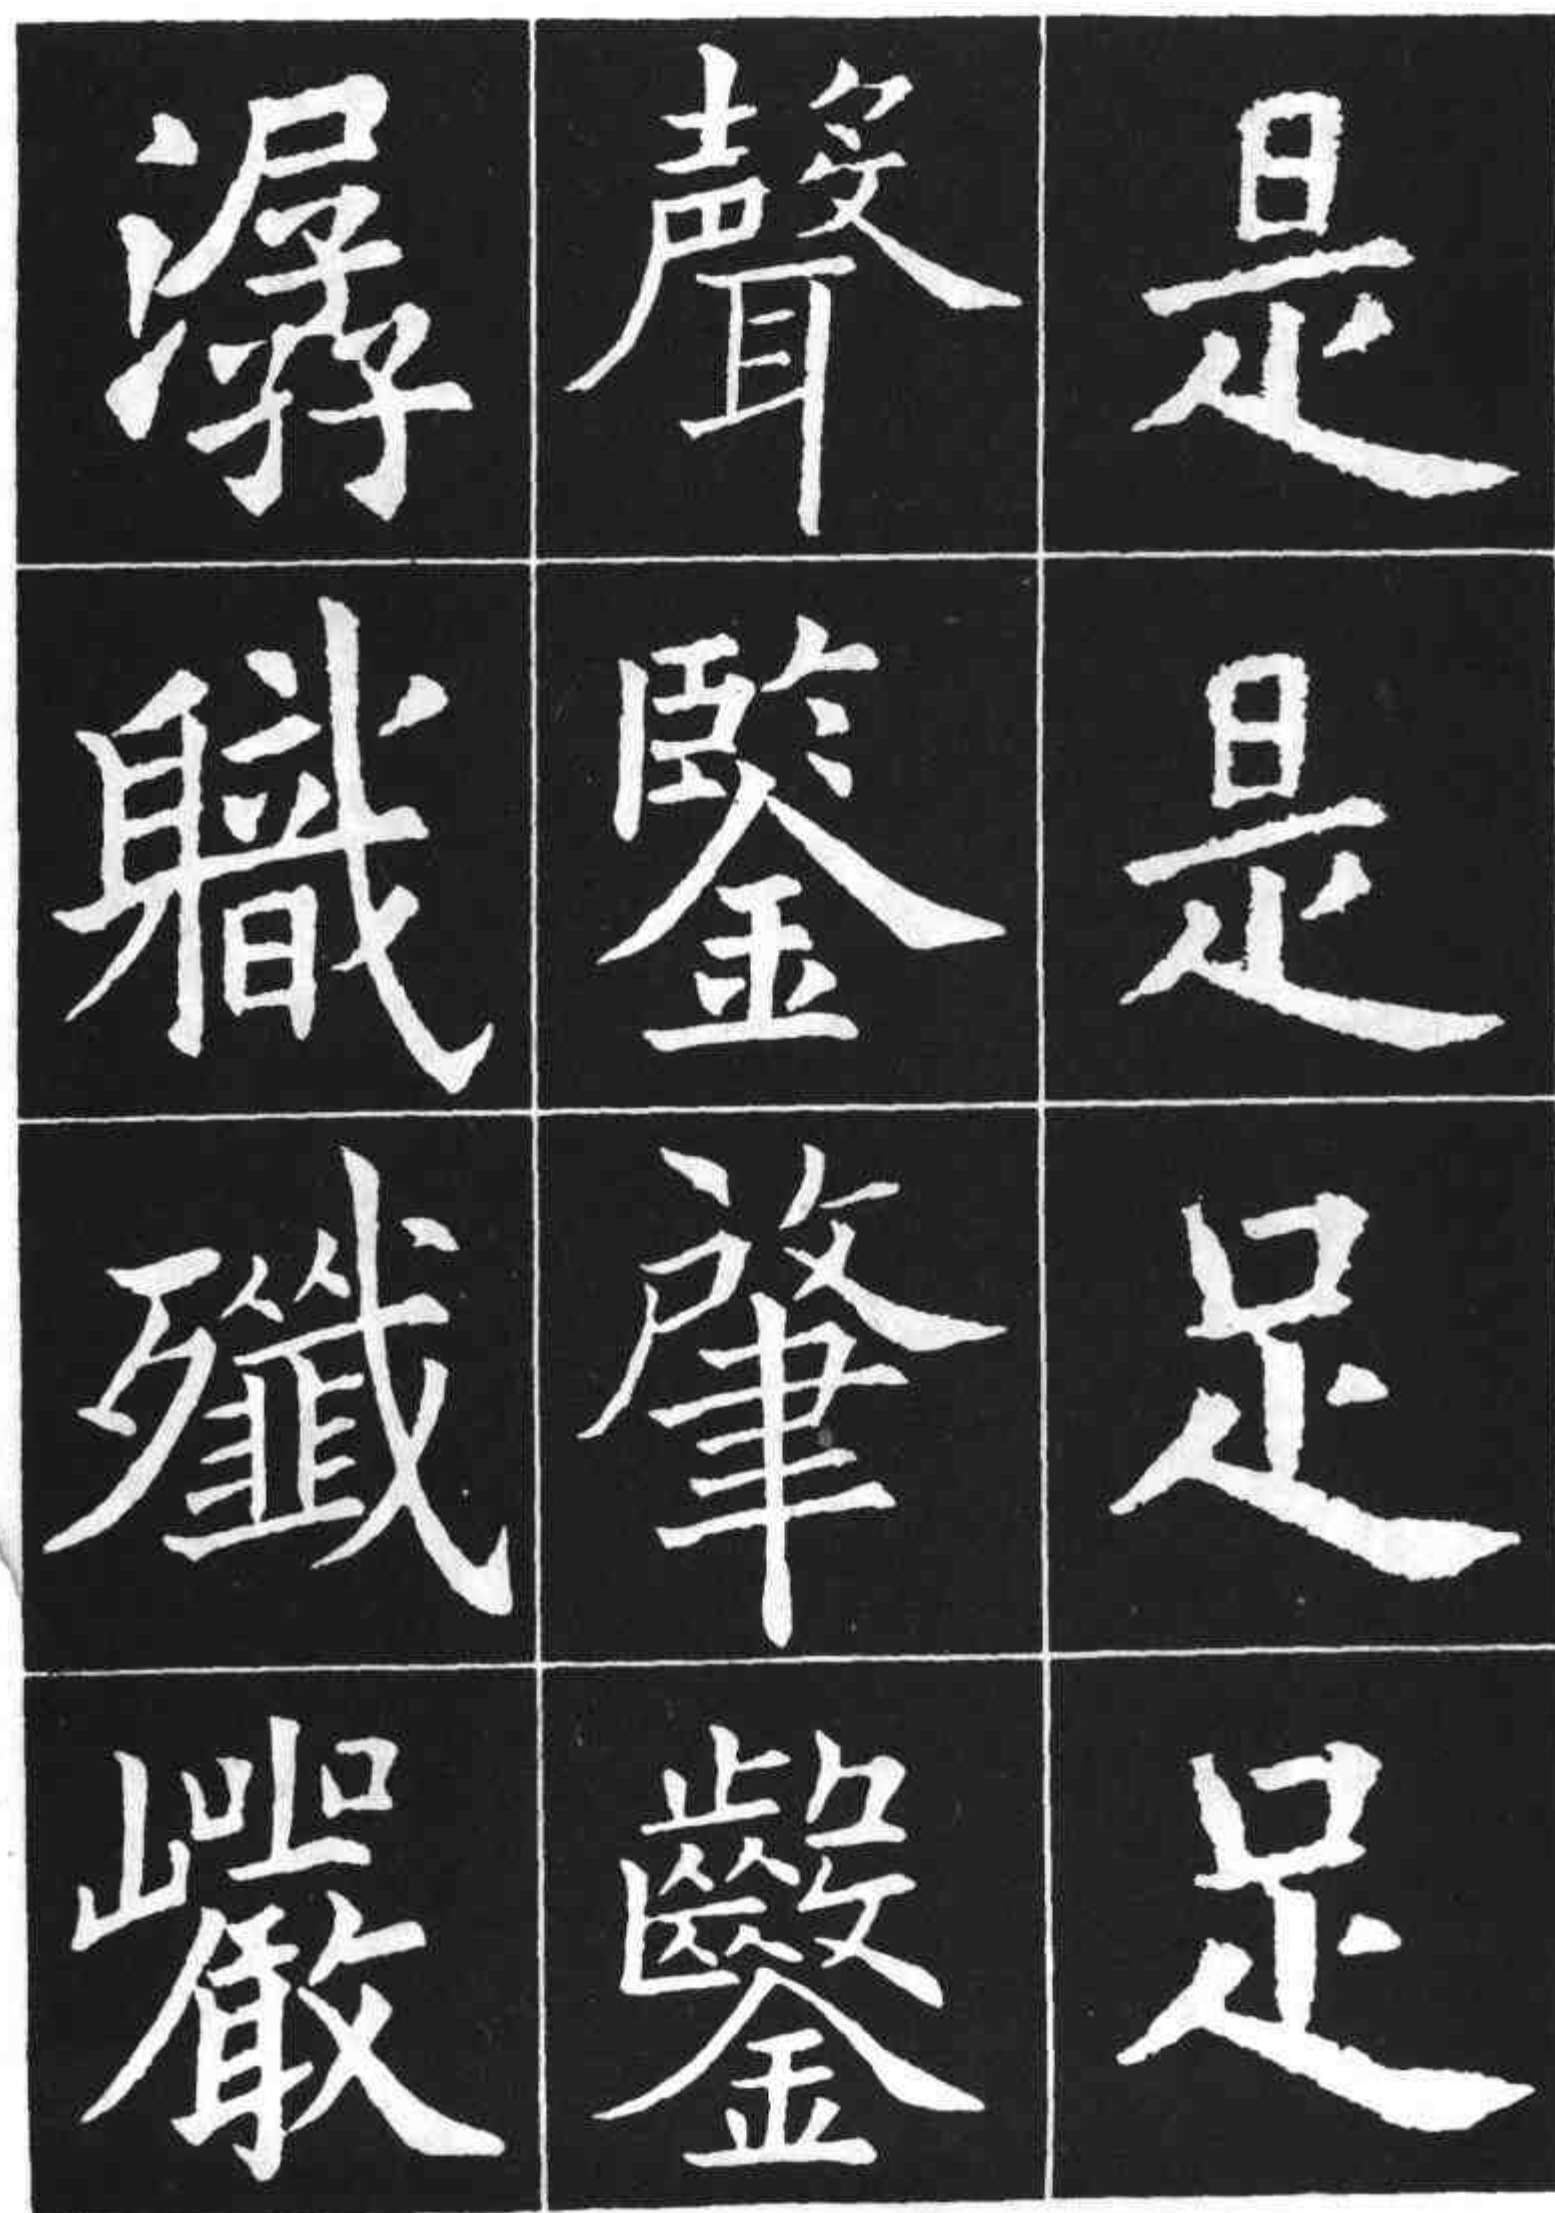 是是足足
聲鑒肇鑿
潺軄殲巖